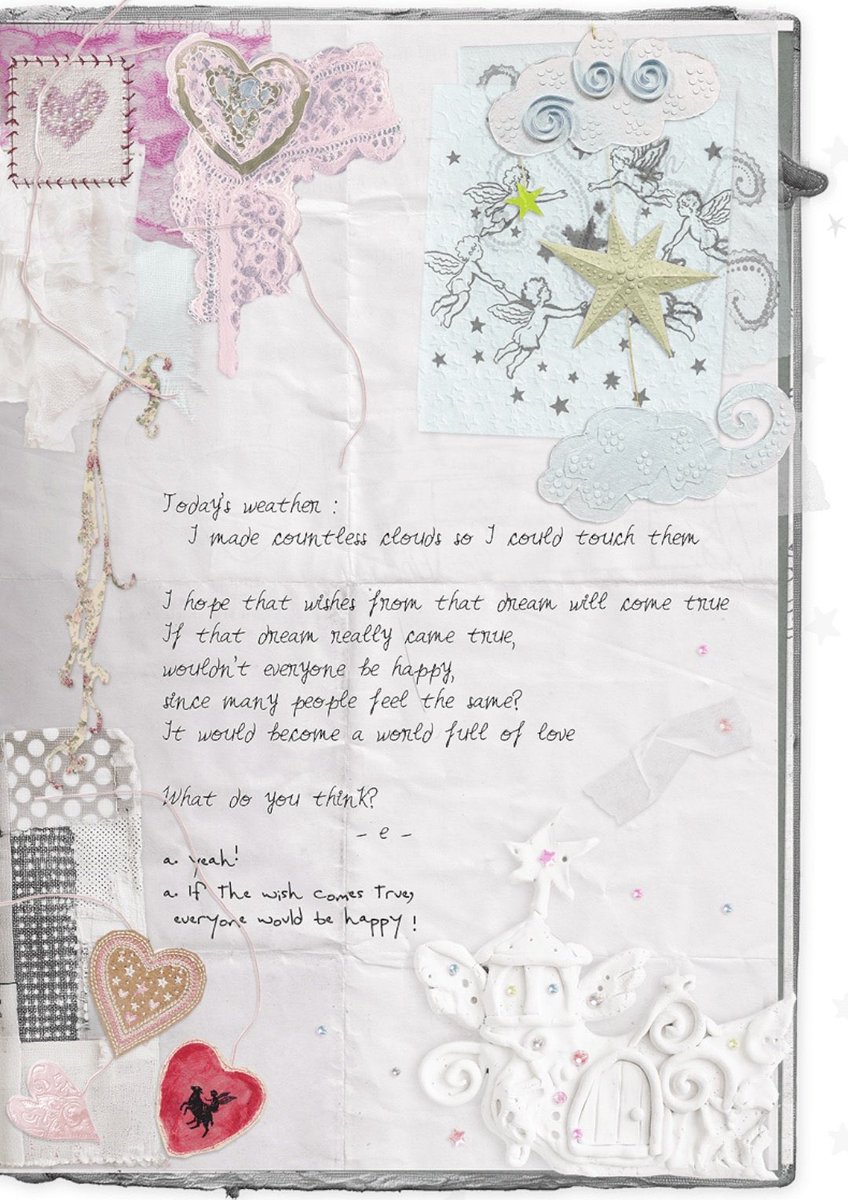 Today's weather :
I made countless clouds so I could touch them
I hope that wishes from that dream will come true
If that dream really came true,
wouldn't everyone be happy,
since many people feel the same?
It would become a world full of love
What do you think?
- e -
a. yeah!
a. If the wish comes true,
everyone would be happy!